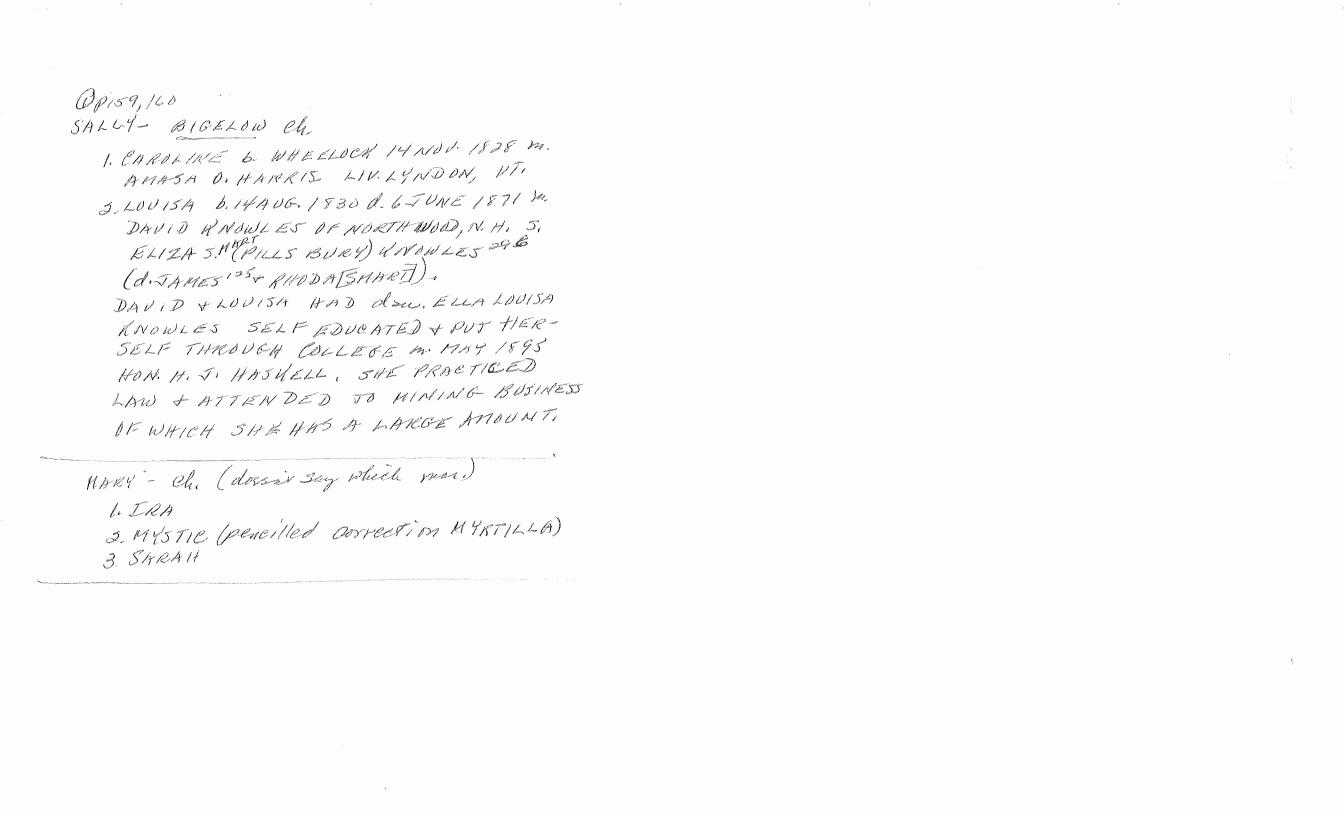 @ p159, 160
SALLY - BIGELOW ch.
1. CAROLINE b. WHEELOCK 14 NOV. 1828 m.
AMASA O. HARRIS LIV. LYNDON, VT.
2. LOUISA b. 14 AUG. 1830 d. 6 JUNE 1871 m.
DAVID KNOWLES OF NORTHWOOD, N.H. S.
ELIZA SMART (PILLSBURY) KNOWLES 296
(d. JAMES 125 + RHODA [SMART]).
DAVID + LOUISA HAD dau. ELLA LOUISA
KNOWLES SELF EDUCATED + PUT HER-
SELF THROUGH COLLEGE m. MAY 1895
HON. H. J. HASKELL. SHE PRACTICED
LAW + ATTENDED TO MINING BUSINESS
OF WHICH SHE HAS A LARGE AMOUNT.
MARY - ch. (doesn't say which mar.)
1. IRA
2. MYSTIC (pencilled correction MYRTILLA)
3 SARAH